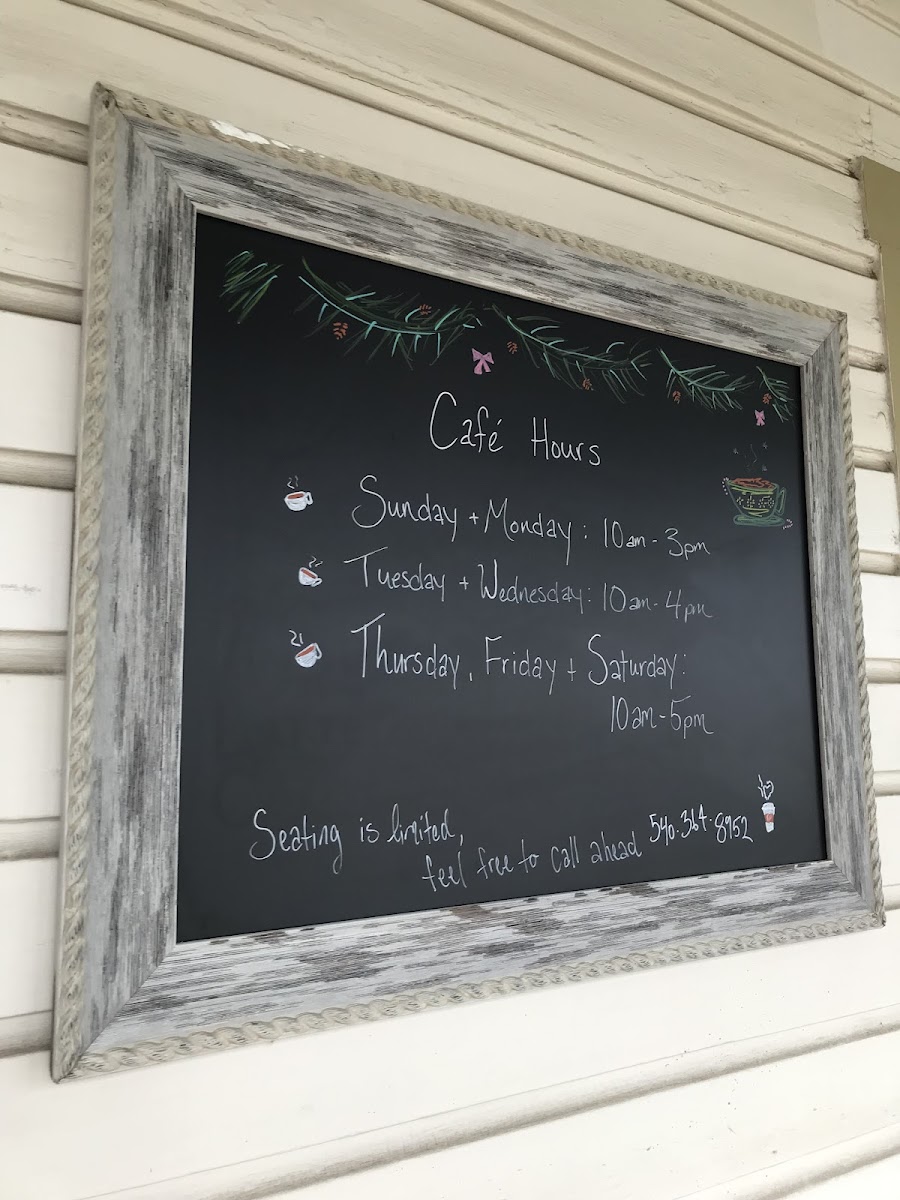 Café Hours
Sunday + Monday: 10am - 3pm
Tuesday + Wednesday: 10am - 4pm
Thursday, Friday + Saturday:
10am - 5pm
Seating is limited,
feel free to call ahead 540·364·8952